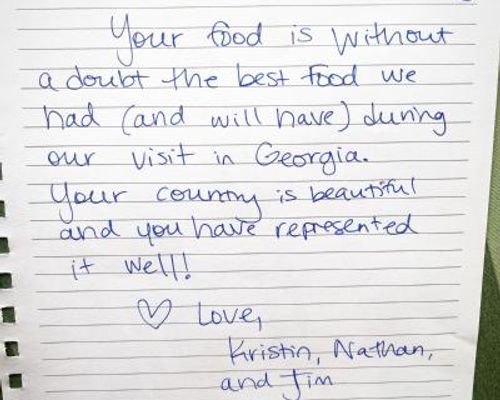 Your food is without
a doubt the best food we
had (and will have) during
our visit in Georgia.
Your country is beautiful
and you have represented
it well!
♡ Love,
Kristin, Nathan,
and Jim